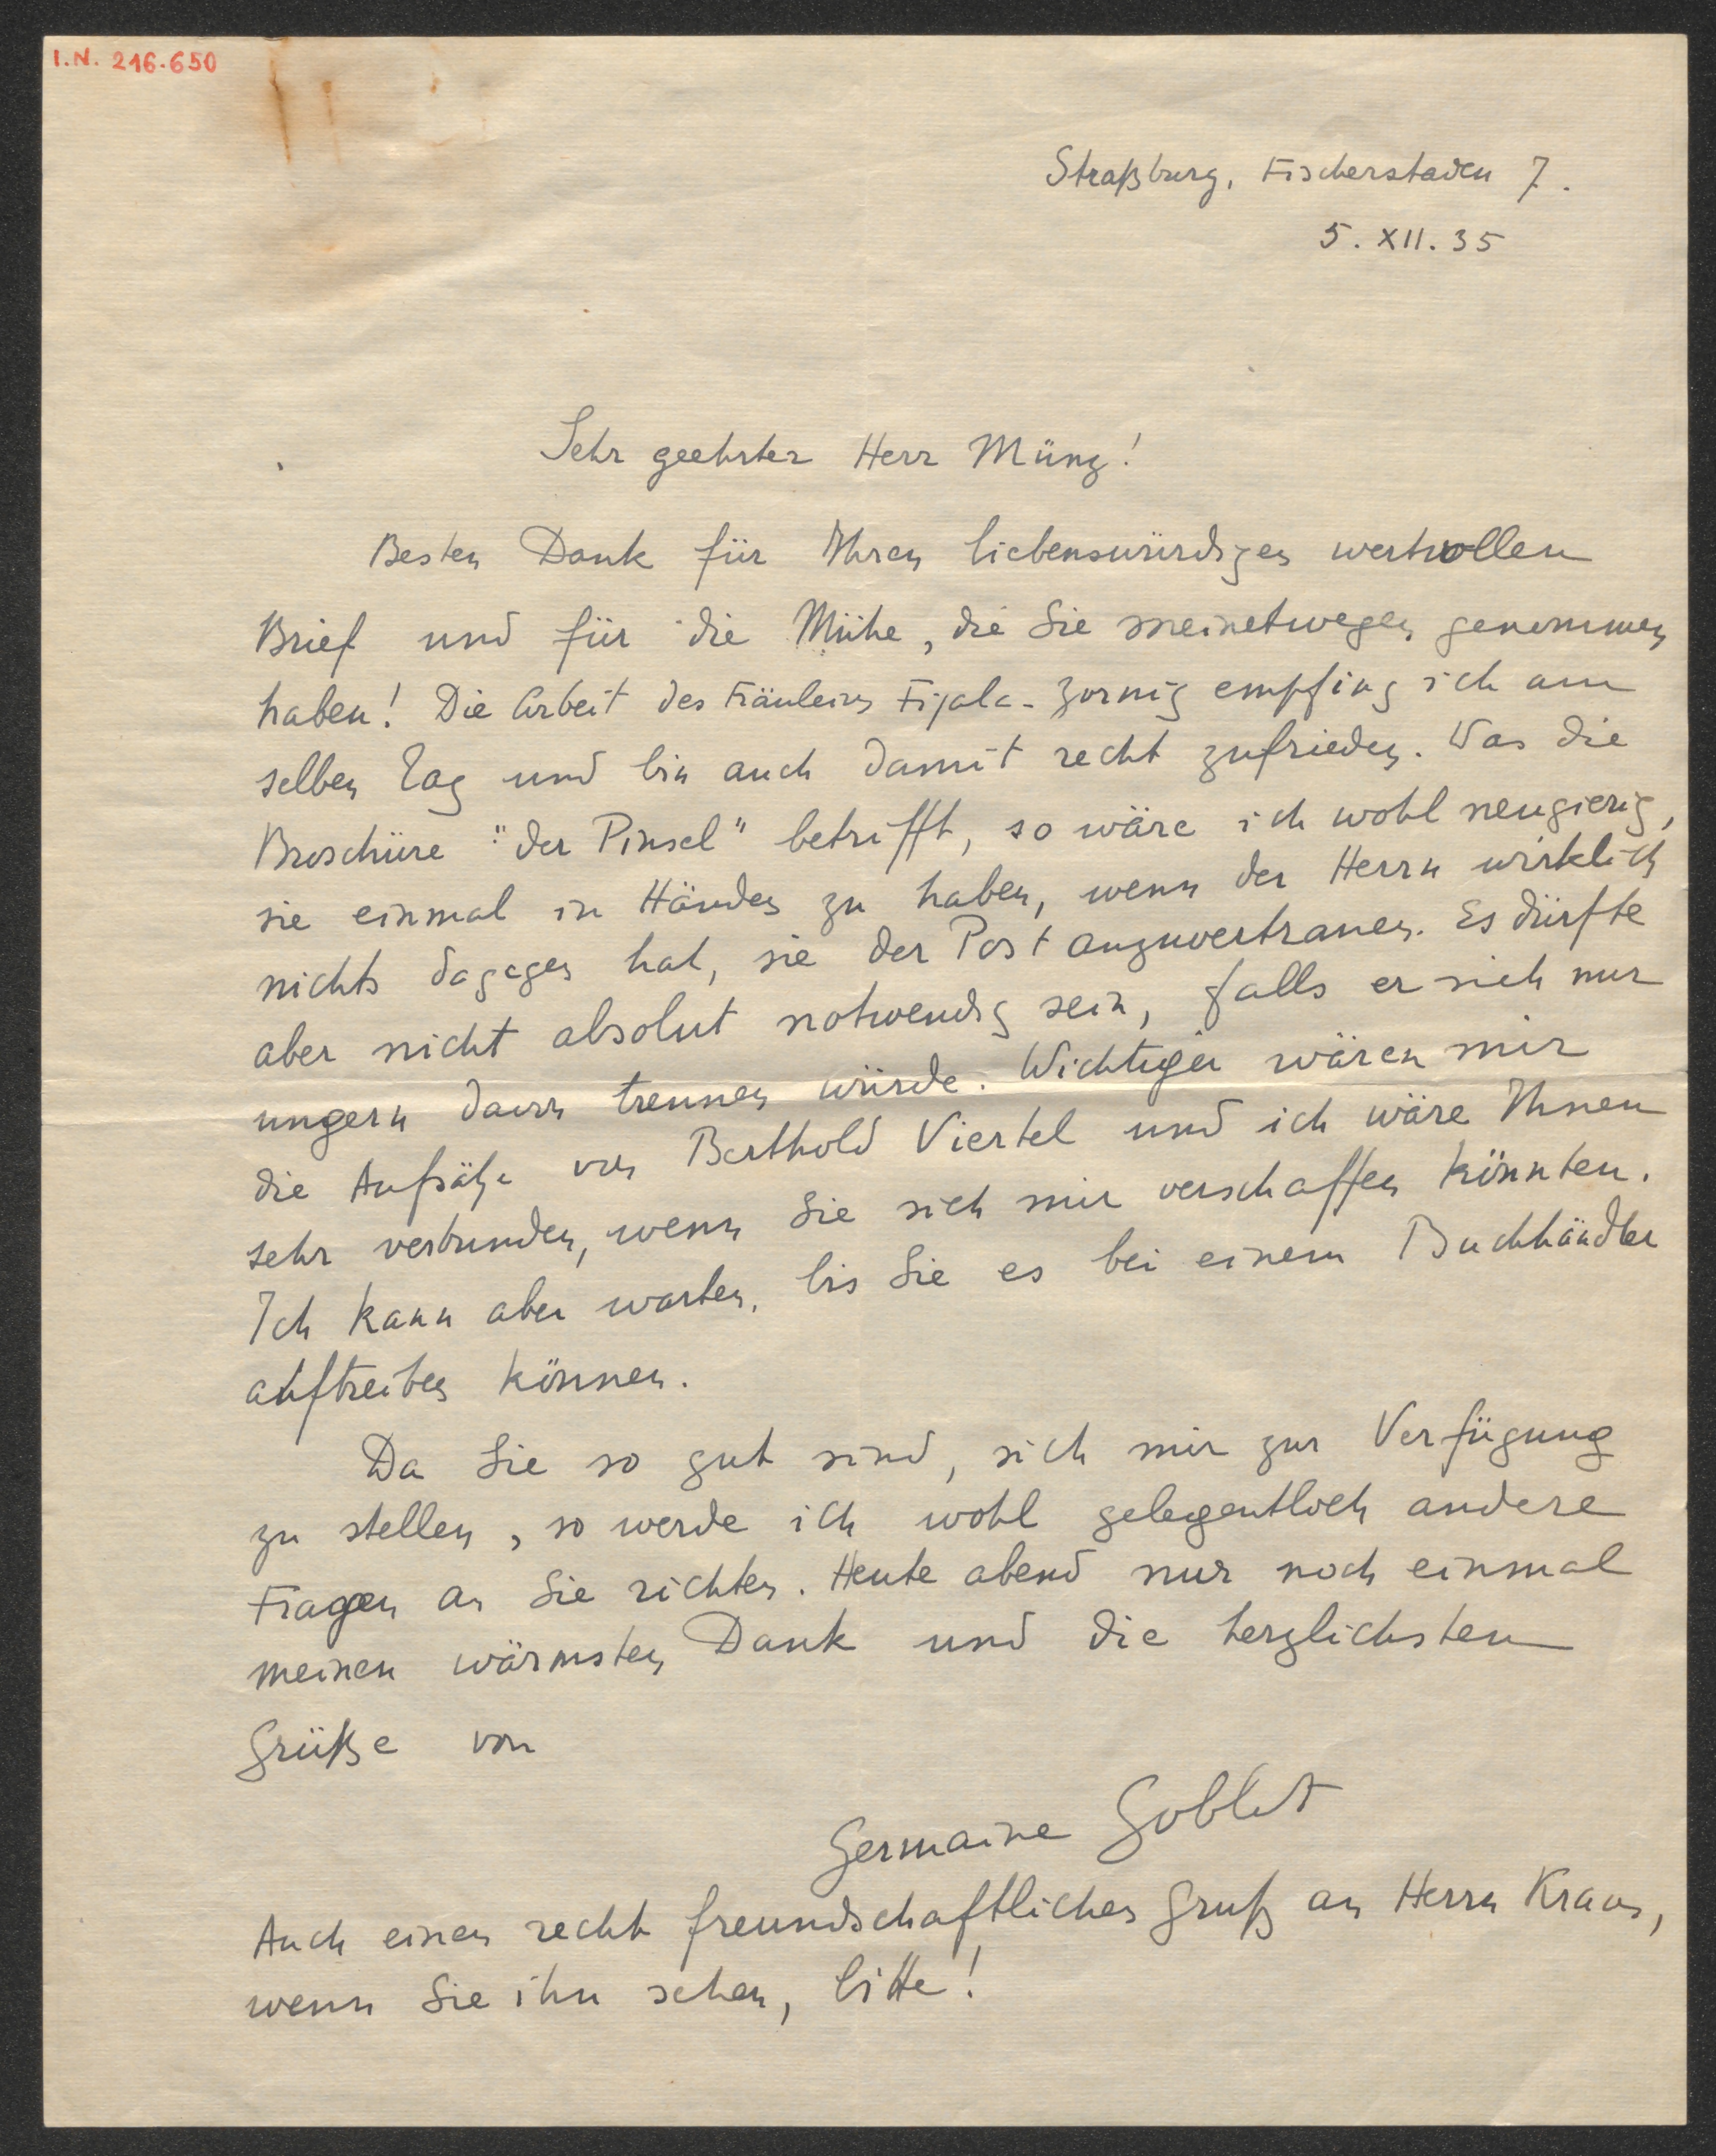 I.N. 216.650
Straßburg, Fischerstaden 7.
5. XII. 35
Sehr geehrter Herr Münz!
Besten Dank für Ihren liebenswürdigen wertvollen
Brief und für die Mühe, die Sie meinetwegen genommen
haben! Die Arbeit des Fräuleins Fijala-Zornig empfing ich am
selben Tag und bin auch damit recht zufrieden. Was die
Broschüre "der Pinsel" betrifft, so wäre ich wohl neugierig,
sie einmal in Händen zu haben, wenn der Herrn wirklich
nichts dagegen hat, sie der Post anzuvertrauen. Es dürfte
aber nicht absolut notwendig sein, falls er sich nur
ungern davon trennen würde. Wichtiger wären mir
die Aufsätze von Berthold Viertel und ich wäre Ihnen
sehr verbunden, wenn Sie sich mir verschaffen könnten.
Ich kann aber warten, bis Sie es bei einem Buchhändler
auftreiben können.
Da Sie so gut sind, sich mir zur Verfügung
zu stellen, so werde ich wohl gelegentlich andere
Fragen an Sie richten. Heute abend nur noch einmal
meinen wärmsten Dank und die herzlichsten
Grüße von
Germaine Goblot
Auch einen recht freundschaftlichen Gruß an Herrn Kraus,
wenn Sie ihn sehen, bitte!